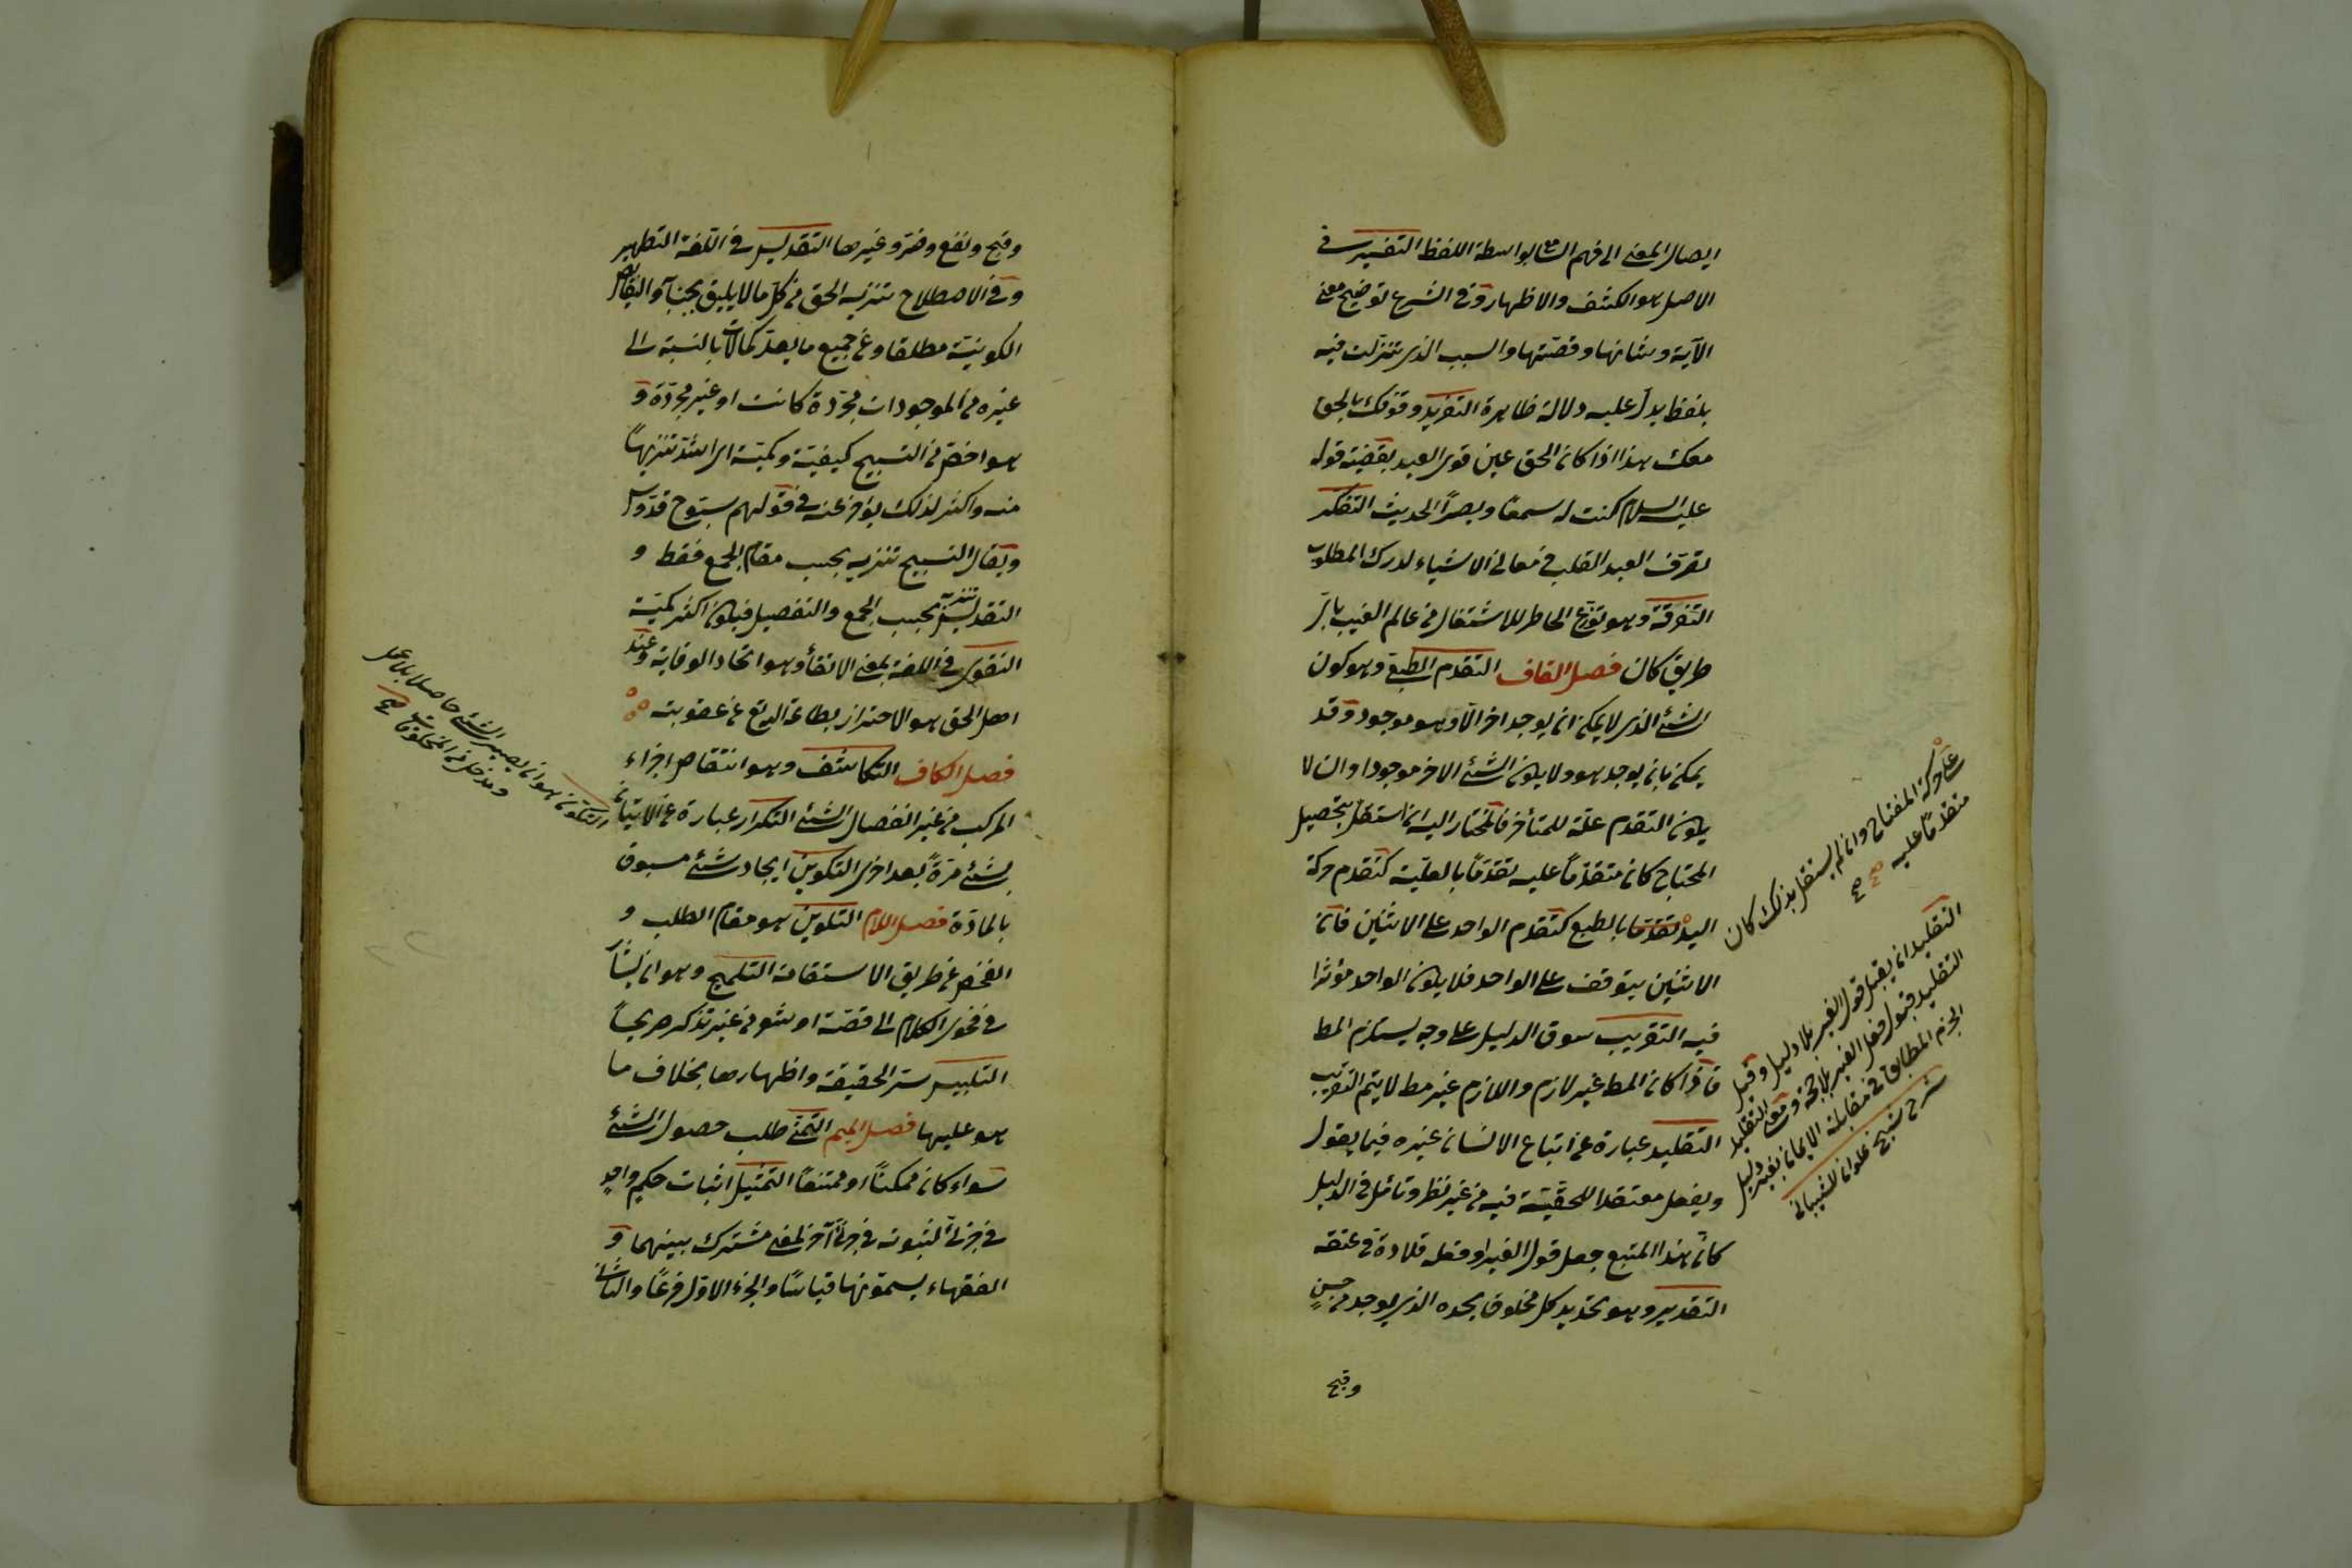 ايصال المعنى الى فهم السامع بواسطة اللفظ التفسير في
الاصل هو الكشف والاظهار وفي الشرع توضيح معنى
الآية وشانها وقصتها والسبب الذي تنزلت فيه
بلفظ يدلّ عليه دلالة ظاهرة التفريد وقوفك بالحق
معك هذا اذا كان الحق عين قوى العبد بقضية قوله
عليه السلام كنت له سمعًا وبصرًا الحديث التفكر
تصرف القلب في معاني الاشياء لدرك المطلوب
التفرقة وهو توزع الخاطر للاشتغال من عالم الغيب باىّ
طريق كان فصل القاف التقدم الطبعي وهو كون
الشئ الذي لا يمكن ان يوجد اخر الّا وهو موجود وقد
يمكن بان يوجد هو ولا يكون الشئ الاخر موجودا وان لا
يكون التقدم علة للمتأخر فالمحتاج اليه ان استقل بتحصيل
المحتاج كان متقدّمًا عليه تقدّمًا بالعلّية كتقدم حركة
اليد تقدّمًا بالطبع كتقدم الواحد على الاثنين فانّ
الاثنين يتوقف على الواحد فلا يكون الواحد مؤثرا
فيه التقريب سوق الدليل على وجه يستلزم المط
فاذا كان المط غير لازم واللازم غير مط لا يتم التقريب
التقليد عبارة عن اتباع الانسان غيره فيما يقول
ويفعل معتقدا للحقيّة فيه من غير نظر وتامّل في الدليل
كانّ هذا المتبع جعل قول الغير او فعله قلادة في عنقه
التقدير وهو تحديد كل مخلوق بحده الذي يوجد من حسنٍ
وقبح
على حركة المفتاح وان لم يستقل بذلك كان
متقدمًا عليه صح صح
التقليد ان يقبل قول الغير بلا دليل وقيل
التقليد قبول فعل الغير بلا حجة ومعنى التقليد
الجزم المطابق في مقابلة الايمان بغير دليل
شرح شيخ علوان للشيباني
وقبح ونفع وضرّ وغيرها التقديس في اللغة التطهير
وفي الاصطلاح تنزيه الحق عن كلّ ما لا يليق بجنابه والنقائص
الكونيّة مطلقا وعن جميع ما يعدّ كمالات بالنسبة الى
غيره من الموجودات مجرّدة كانت او غير مجرّدة و
هو اخصّ من التسبيح كيفيّة وكميّة اى اشدّ تنزيهًا
منه واكثر لذلك يؤخر عنه في قولهم سبّوح قدّوس
ويقال التسبيح تنزيه بحسب مقام الجمع فقط و
التقديس تنزيه بحسب الجمع والتفصيل فيكون اكثر كميّة
التقوى في اللغة بمعنى الاتقاء وهو اتخاذ الوقاية وعند
اهل الحق هو الاحتراز بطاعة الله تع عن عقوبته
فصل الكاف التكاثف وهو انتقاص اجزاء
المركب من غير انفصال الشئ التكرار عبارة عن الاتيان
بشئ مرةً بعد اخرى التكوين ايجاد شئ مسبوق
بالمادّة فصل اللام التلوين هو مقام الطلب و
الفحص عن طريق الاستقامة التلميح وهو ان يشار
في فحوى الكلام الى قصّة او شعر من غير تذكر صريحًا
التلبيس ستر الحقيقة واظهارها بخلاف ما
هو عليها فصل الميم التمنّي طلب حصول الشئ
سواء كان ممكنًا او ممتنعًا التمثيل اثبات حكمٍ واحدٍ
في جزئىّ لثبوته في جزئىّ آخر لمعنى مشترك بينهما و
الفقهاء يسمّونها قياسًا والجزء الاوّل فرعًا والثاني
التكوّن هو ان يصير الشئ حاصلا بلا عمل
ومدخل من المخلوقات صح